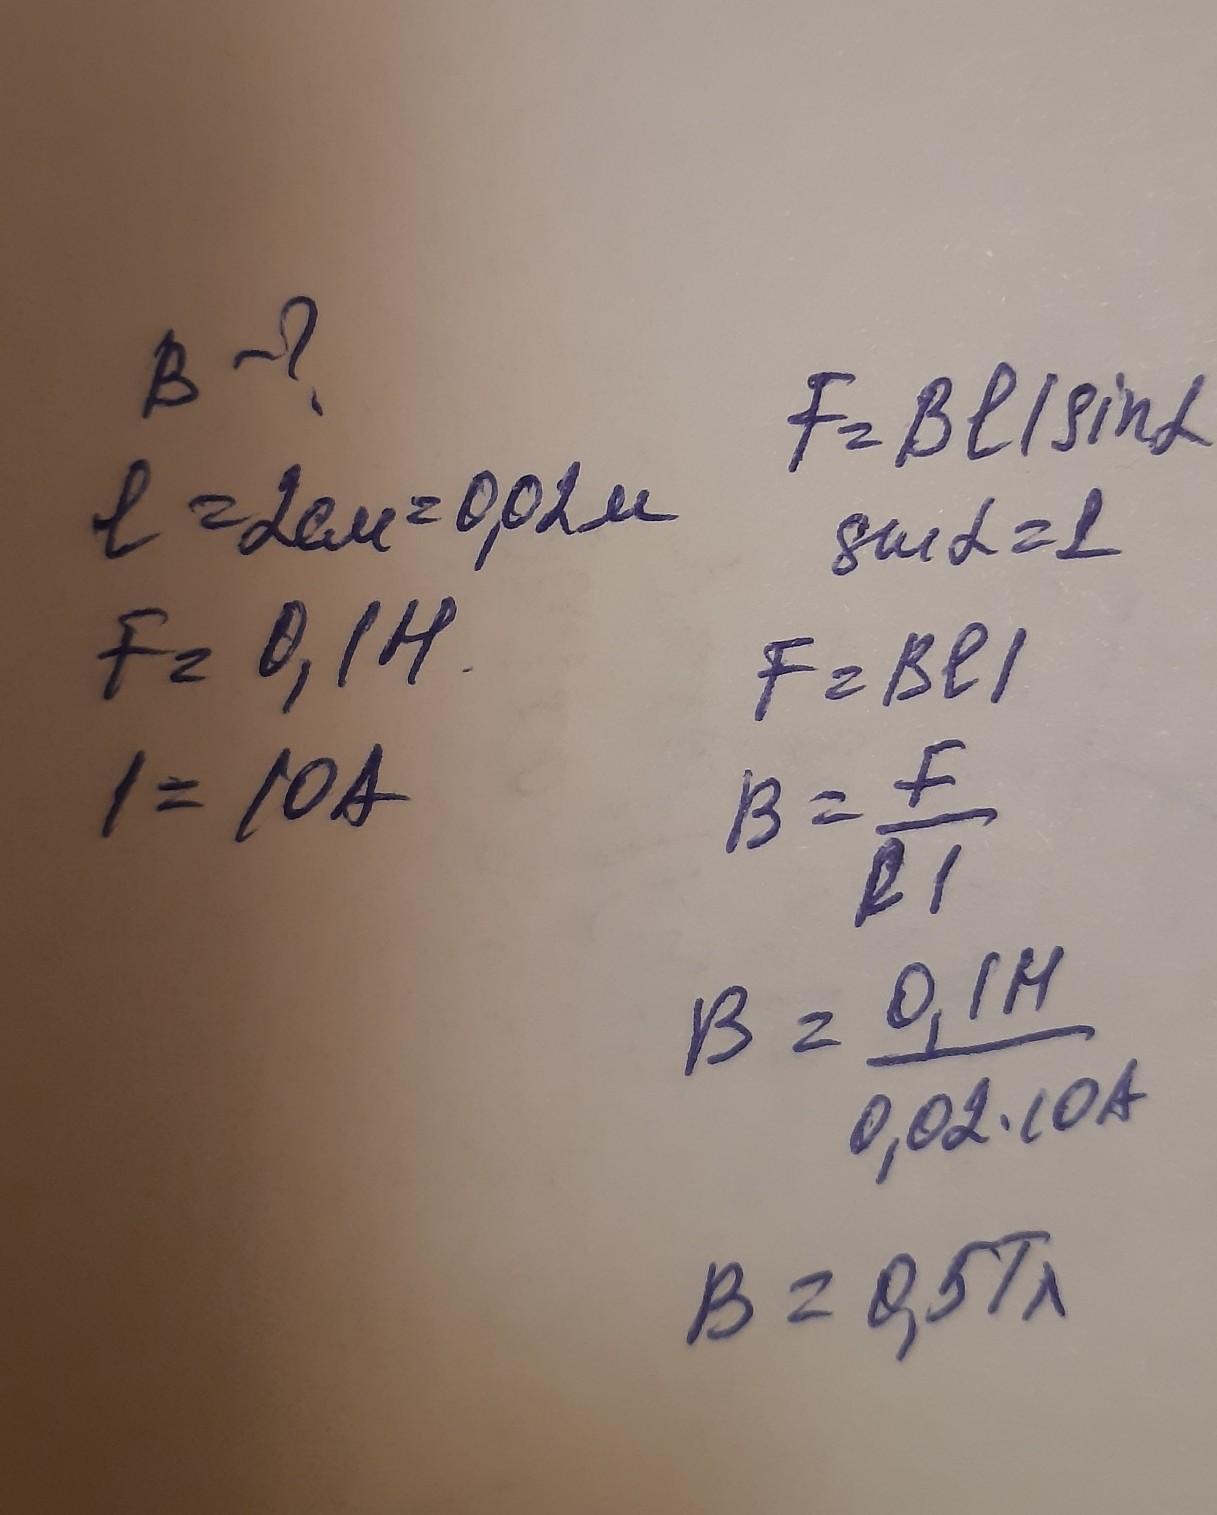 B -?
l = 2см = 0,02м
F = 0,1Н.
I = 10А
F = BlIsinα
sinα = 1
F = BlI
B = F
lI
B = 0,1Н
0,02·10А
B = 0,5Тл